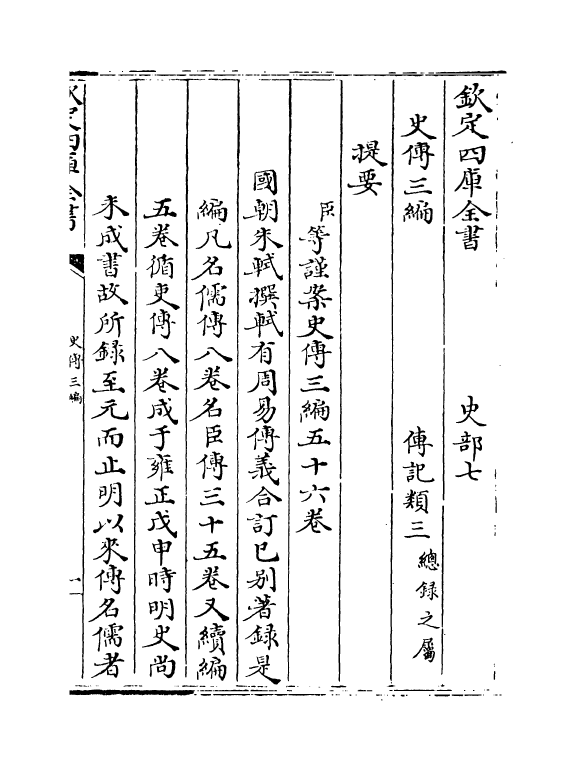 欽定四庫全書　史部七
史傳三編　傳記類三總錄之屬
提要
臣等謹案史傳三編五十六卷
國朝朱軾撰軾有周易傳義合訂已别著録是
編凡名儒傳八卷名臣傳三十五卷又續編
五卷循吏傳八卷成于雍正戊申時明史尚
未成書故所録至元而止明以來傳名儒者
欽定四庫全書
史傳三編
一